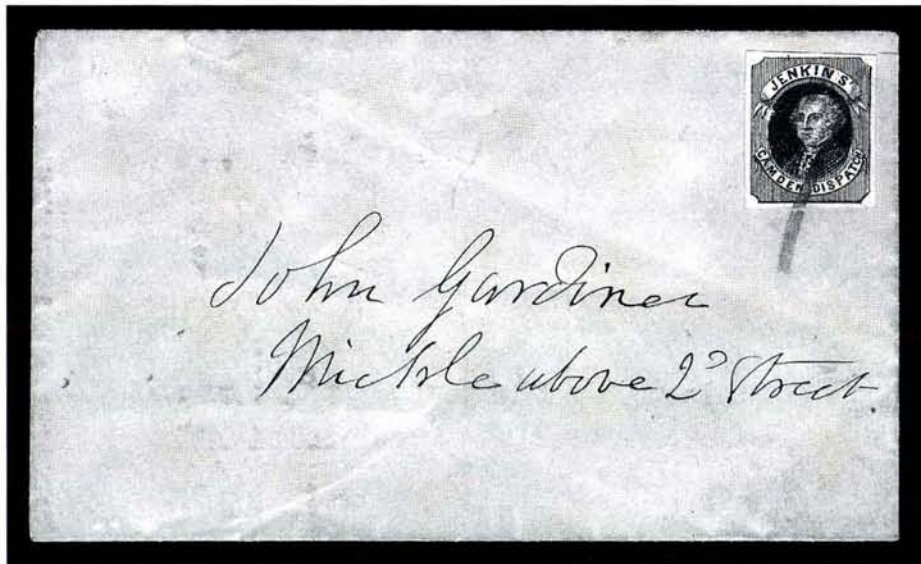 JENKINS'
CAMDEN DISPATCH
John Gardiner
Mickle above 2d Street.